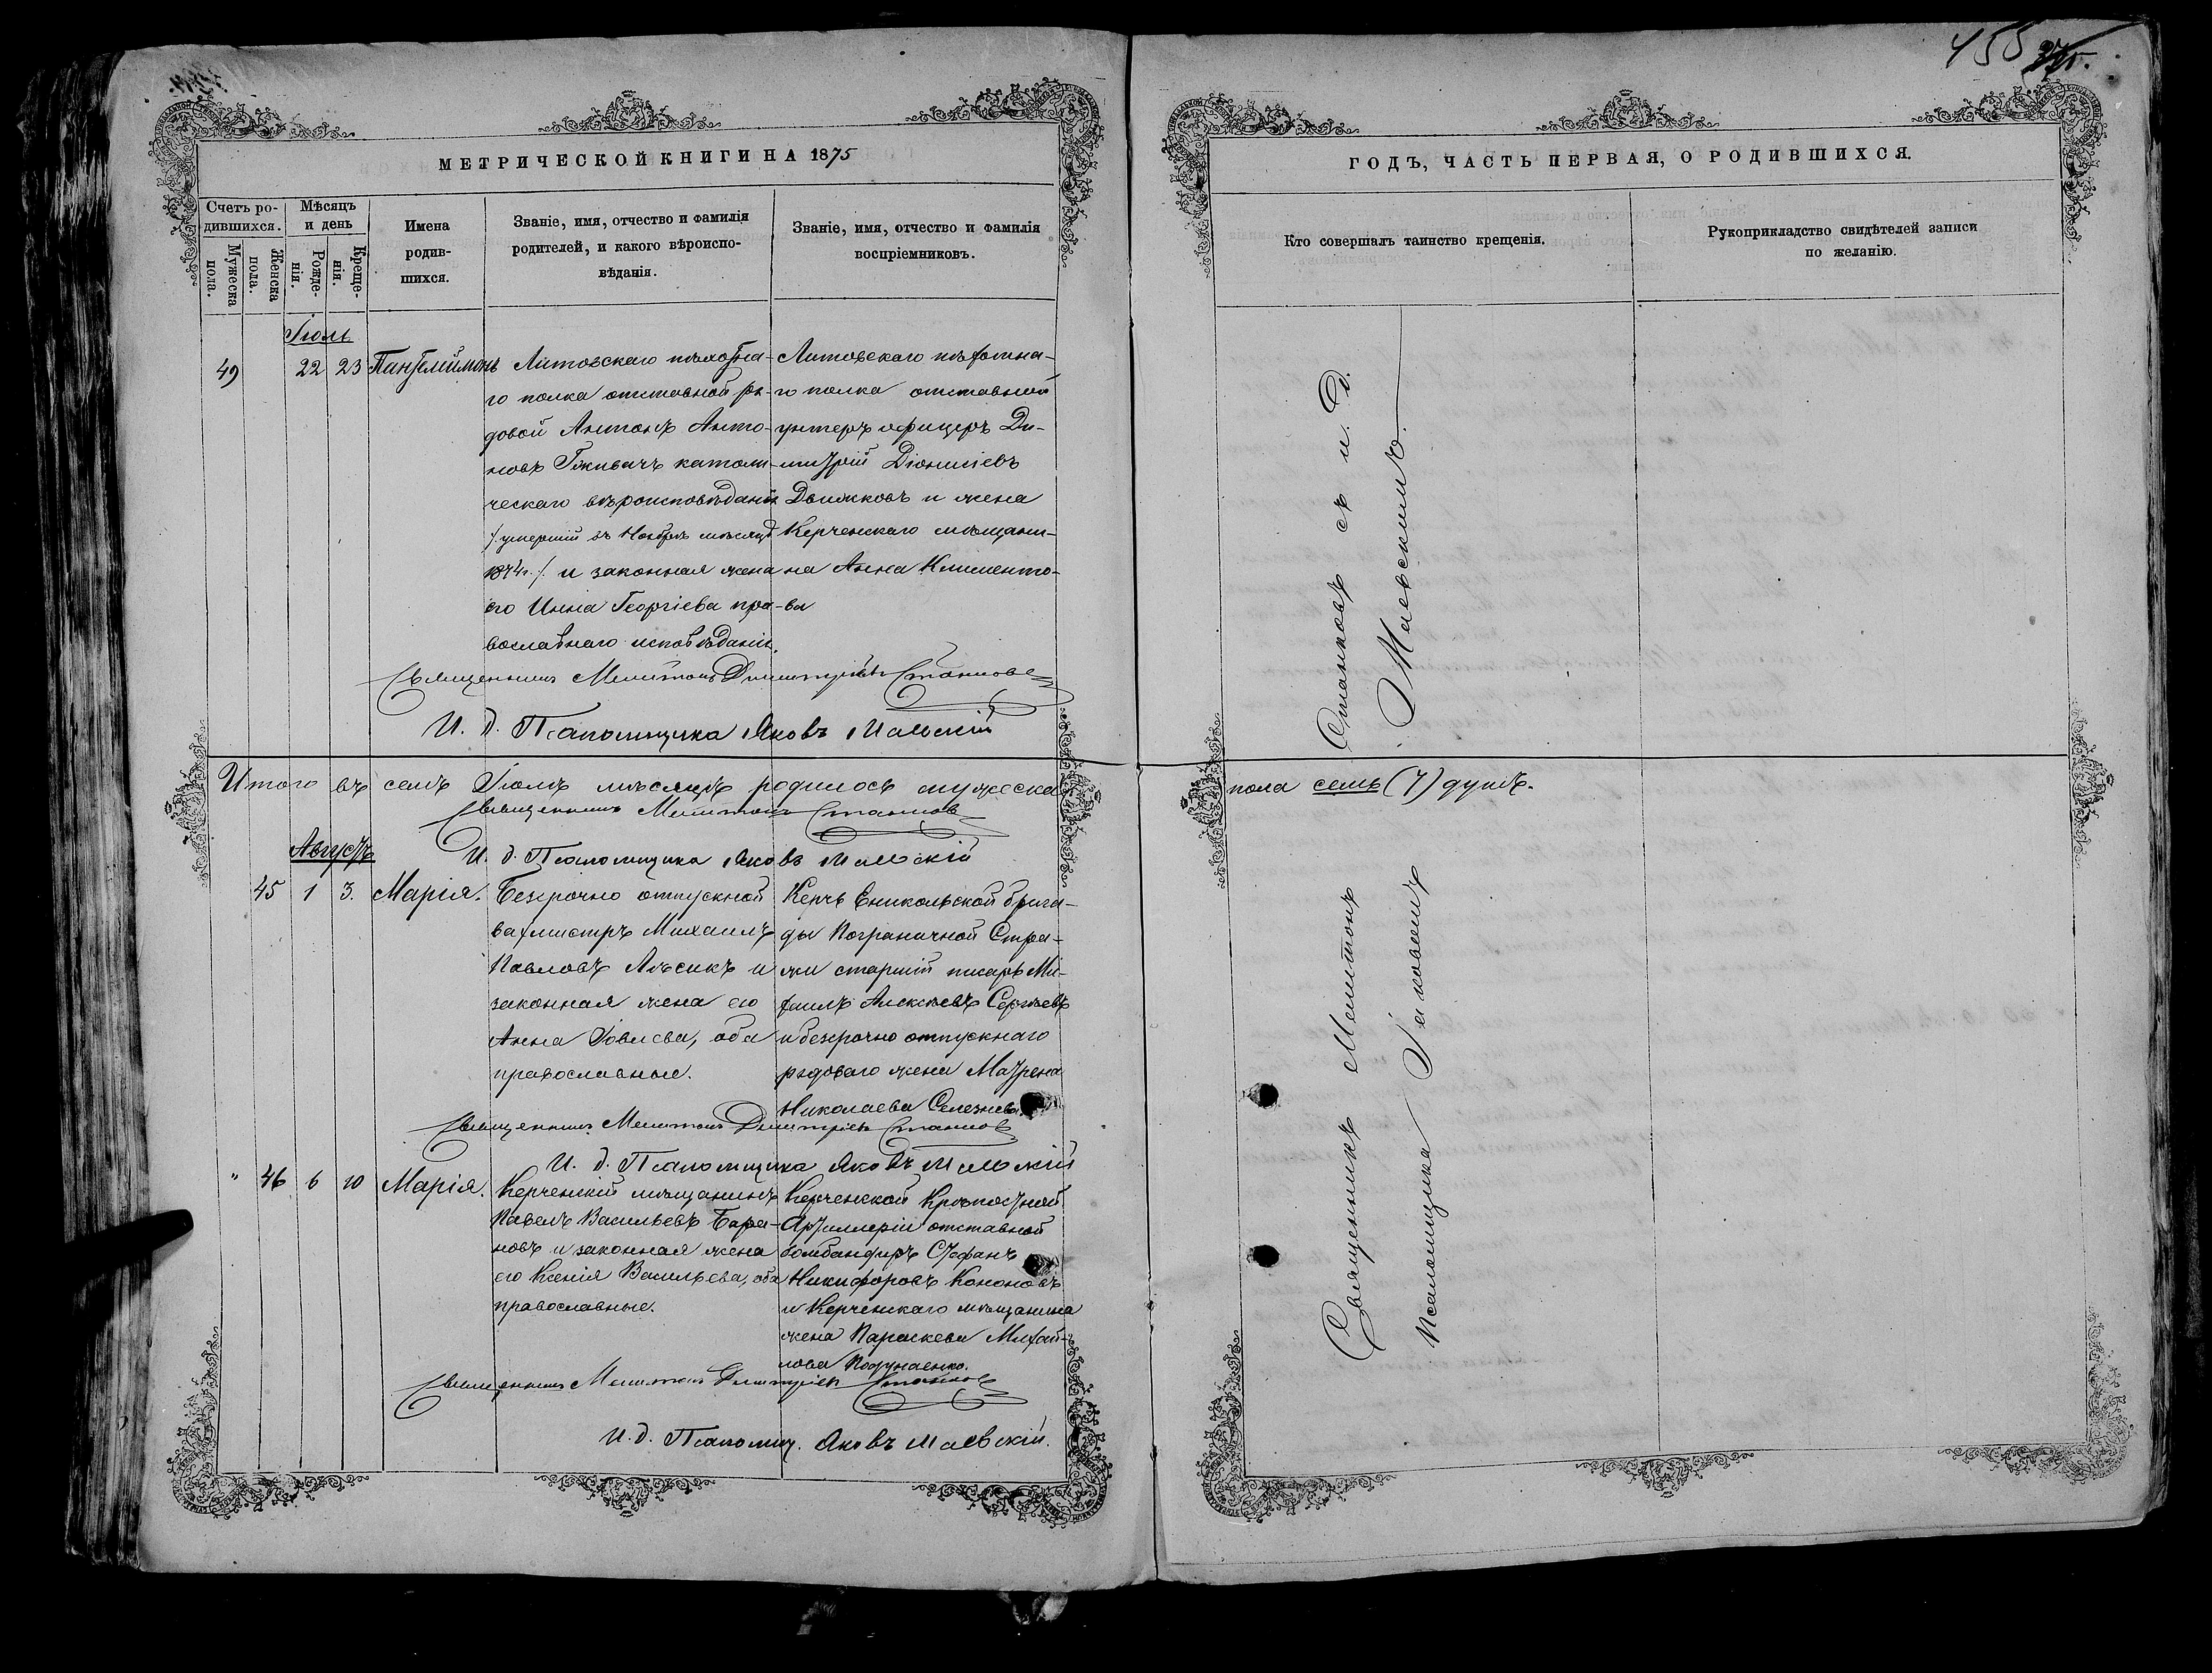 455
МЕТРИЧЕСКОЙ КНИГИ НА 1875
ГОДЪ, ЧАСТЬ ПЕРВАЯ, О РОДИВШИХСЯ.
Счетъ родившихся.
Мужеска пола.
Женска пола.
Мѣсяцъ и день
Рожденія.
Крещенія.
Имена родившихся.
Званіе, имя, отчество и фамилія
родителей, и какого вѣроиспо-
вѣданія.
Званіе, имя, отчество и фамилія
воспріемниковъ.
Кто совершалъ таинство крещенія.
Рукоприкладство свидѣтелей записи
по желанію.
Іюль
49 22 23 Пантелеймонъ
Литовскаго пѣхотна-
го полка отставной ря-
довой Антонъ Анто-
новъ католи-
ческаго вѣроисповѣданія
/умершій въ Ноябрѣ мѣсяцѣ
1874г./. и законная жена
его Анна Георгіева пра-
вославнаго исповѣданія.
Литовскаго пѣхотна-
го полка отставной
унтеръ офицеръ Ди-
митрій Діонисіевъ
Движковъ и жена
Керченскаго мѣщани-
на Анна Климентo-
ва
Священникъ Мелитонъ Димитріевъ Станковъ
И. д. Псаломщика Яковъ Маевскій
Станковъ съ и. д.
Маевскимъ.
Итого въ семъ Іюлѣ мѣсяцѣ родилось мужеска
пола семь (7) душъ.
Священникъ Мелитонъ Станковъ
И. д. Псаломщика Яковъ Маевскій
Августъ
45 1 3. Марія.
Безсрочно отпускной
вахмистръ Михаилъ
Павловъ Алесикъ и
законная жена его
Анна Іовлева, оба
православные.
Керчь Еникольской брига-
ды Пограничной Стра-
жи старшій писарь Ми-
хаилъ Алексѣевъ Сергѣевъ
и безсрочно отпускнаго
рядоваго жена Матрена
Николаева Селезнева.
Священникъ Мелитонъ Димитріевъ Станковъ
И. д. Псаломщика Яковъ Маевскій
" 46 6 10 Марія.
Керченскій мѣщанинъ
Павелъ Васильевъ Бара-
новъ и законная жена
его Ксенія Васильева, оба
православные.
Керченской Крѣпостной
Артиллеріи отставной
бомбандиръ Стефанъ
Никифоровъ Кононовъ
и Керченскаго мѣщанина
жена Параскева Михай-
лова
Священникъ Мелитонъ Димитріевъ Станковъ
И. д. Псаломщ. Яковъ Маевскій.
Священникъ Мелитонъ
Псаломщика Яковомъ